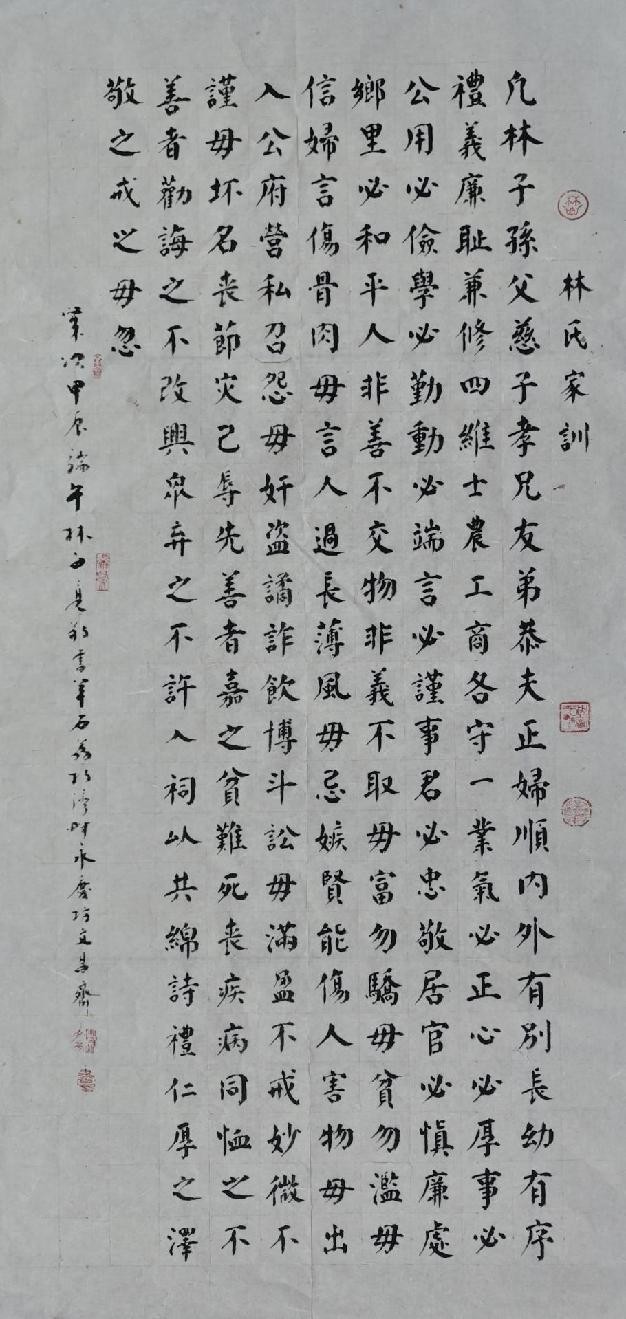 林氏家訓
凡林子孫父慈子孝兄友弟恭夫正婦順內外有別長幼有序
禮義廉耻兼修四維士農工商各守一業氣必正心必厚事必
公用必儉學必勤動必端言必謹事君必忠敬居官必慎廉處
鄉里必和平人非善不交物非義不取毋富勿驕毋貧勿濫毋
信婦言傷骨肉毋言人過長薄風毋忌嫉賢能傷人害物毋出
入公府營私召怨毋奸盗譎詐飲博斗訟毋滿盈不戒妙微不
謹毋坏名丧節灾己辱先善者嘉之貧難死丧疾病同恤之不
善者勸誨之不改興衆弃之不許入祠以共綿詩禮仁厚之澤
敬之戒之毋忽
歲次甲辰端午林